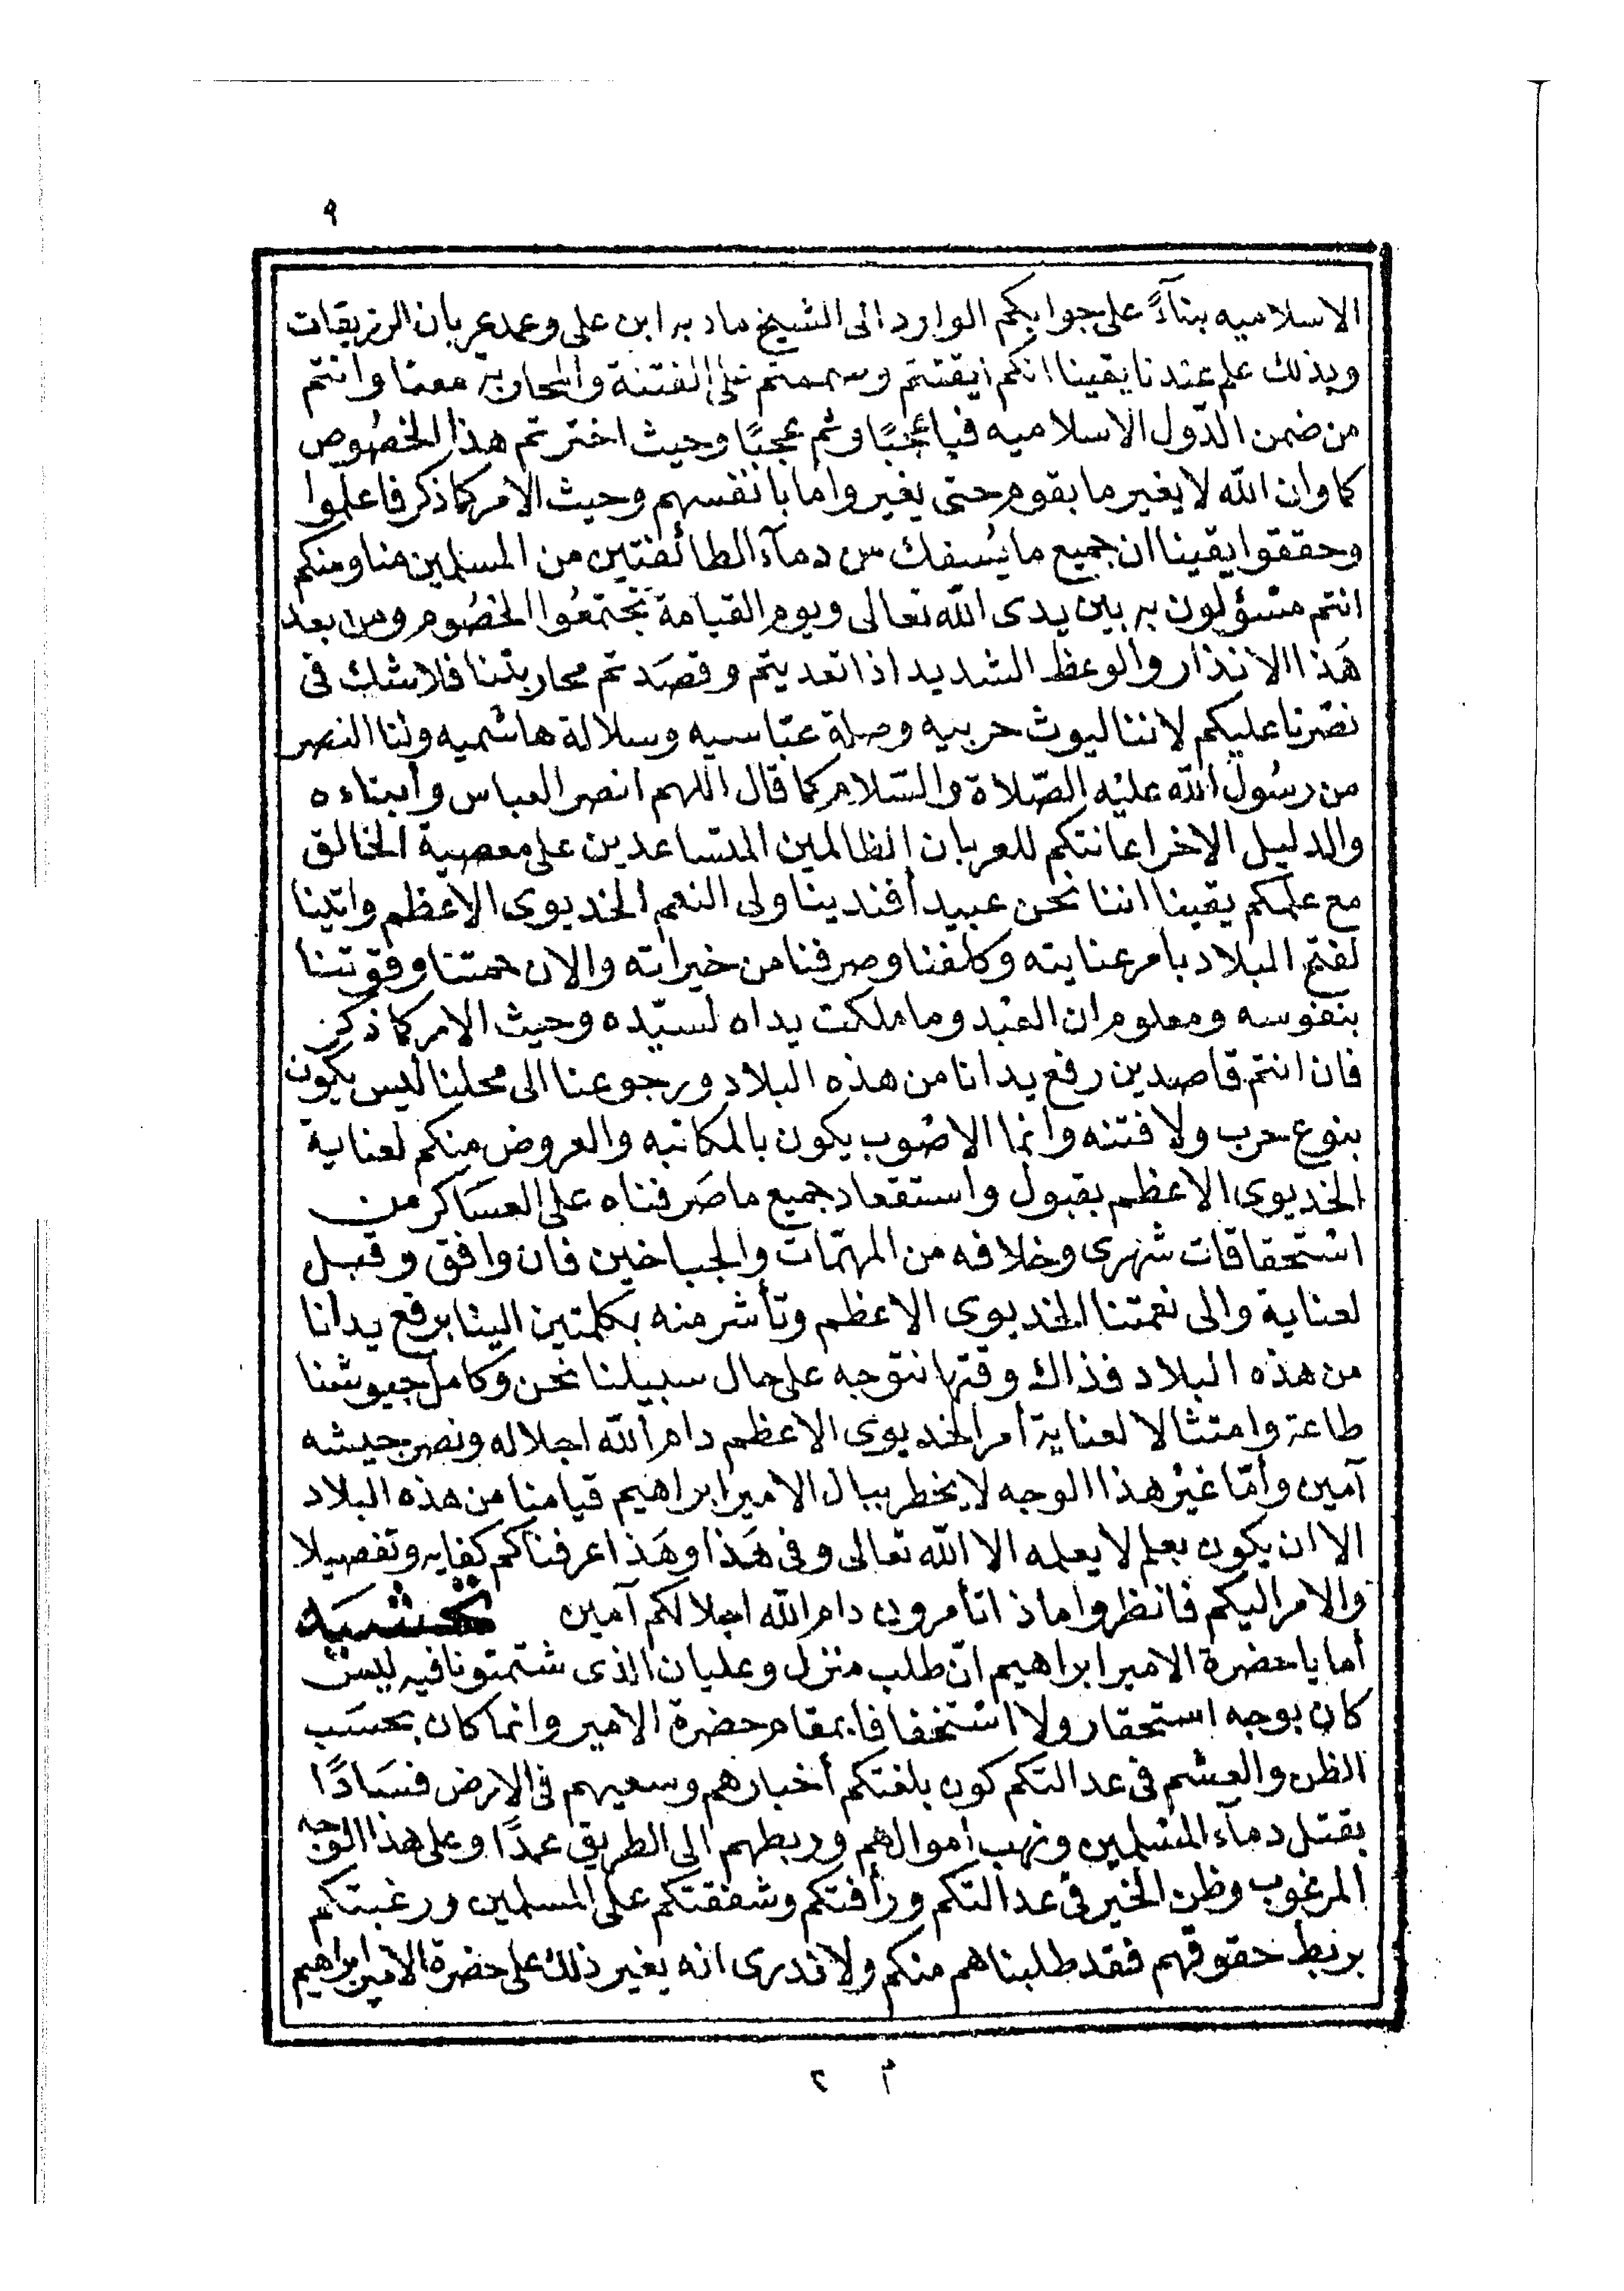 ٩
الاسلاميه بنآءً على جوابكم الوارد الى الشيخ مادبه ابن على وعمد عربان الرزيقات
وبذلك علم عندنا يقينا انكم أيقنتم وسممتم على الفتنة والمحاربة معنا وانتم
من ضمن الدّول الاسلاميه فياعجبًا وثم عجبًا وحيث اخترتم هذا الخصُوص
كما وان الله لا يغير ما بقوم حتى يغيروا ما بانفسهم وحيث الامر كما ذكر فاعلموا
وحققوا يقينا ان جميع ما يُسفك من دمآء الطائفتين من المسلمين منا ومنكم
انتم مسؤلون به بين يدى الله تعالى ويوم القيامة تجتمعُوا الخصُوم ومن بعد
هَذا الانذار والوعظ الشديد اذا تعديتم وقصَدتم محاربتنا فلا شك فى
نصرنا عليكم لاننا ليوث حربيه وصلة عبّاسيه وسلالة هاشميه ولنا النصر
من رسُول الله عليْه الصّلاة والسّلام كما قال اللهم انصر العباس وأبناءه
والدليل الاخر اعانتكم للعربان الظالمين المتساعدين على معصية الخالق
مع علمكم يقينا اننا نحن عبيد أفندينا ولى النعم الخديوى الاعظم واتينا
لفتح البلاد بامر عنايته وكلفنا وصرفنا من خيراته والان همتنا وقوتنا
بنفوسه ومعلوم ان العبْد وما ملكت يداه لسيّده وحيث الامر كما ذكر
فان انتم قاصدين رفع يدانا من هذه البلاد ورجوعنا الى محلنا ليس يكون
بنوع حرب ولا فتنه وانما الاصْوب يكون بالمكاتبه والعروض منكم لعناية
الخديوى الاعظم بقبول واستقعاد جميع ما صَرفناه على العسَاكر من
استحقاقات شهرى وخلافه من المهمّات والجباخين فان وافق وقبل
لعناية والى نعمتنا الخديوى الاعظم وتأشر منه بكلمتين الينا برفع يدانا
من هذه البلاد فذاك وقتها نتوجه على حال سبيلنا نحن وكامل جيوشنا
طاعة وامتثالا لعناية أمر الخديوى الاعظم دام الله اجلاله ونصر جيشه
آمين وأمّا غيْر هذا الوجه لا يخطر ببال الامير ابراهيم قيامنا من هذه البلاد
الا ان يكون بعلم لا يعلمه الا الله تعالى وفى هَذا وهَذا عرفناكم كفايه وتفصيلا
والامر اليكم فانظروا ماذا تأمرون دام الله اجلالكم آمين تحشيَه
أما يا حضرة الامير ابراهيم انّ طلب منزل وعليان الذى شتمتونا فيه ليس
كان بوجه استحقار ولا استخفافا بمقام حضرة الامير وانما كان بحسَب
الظن والعشم فى عدالتكم كون بلغتكم أخبارهم وسعيهم فى الارض فسَادًا
بقتل دمآء المسلمين ونهب أموالهم وربطهم الى الطريق عمدًا وعلى هذا الوجه
المرغوب وظن الخير فى عدالتكم ورأفتكم وشفقتكم على المسلمين ورغبتكم
بربط حقوقهم فقد طلبناهم منكم ولا ندرى انه يغير ذلك على حضرة الامير ابراهيم
م ٢